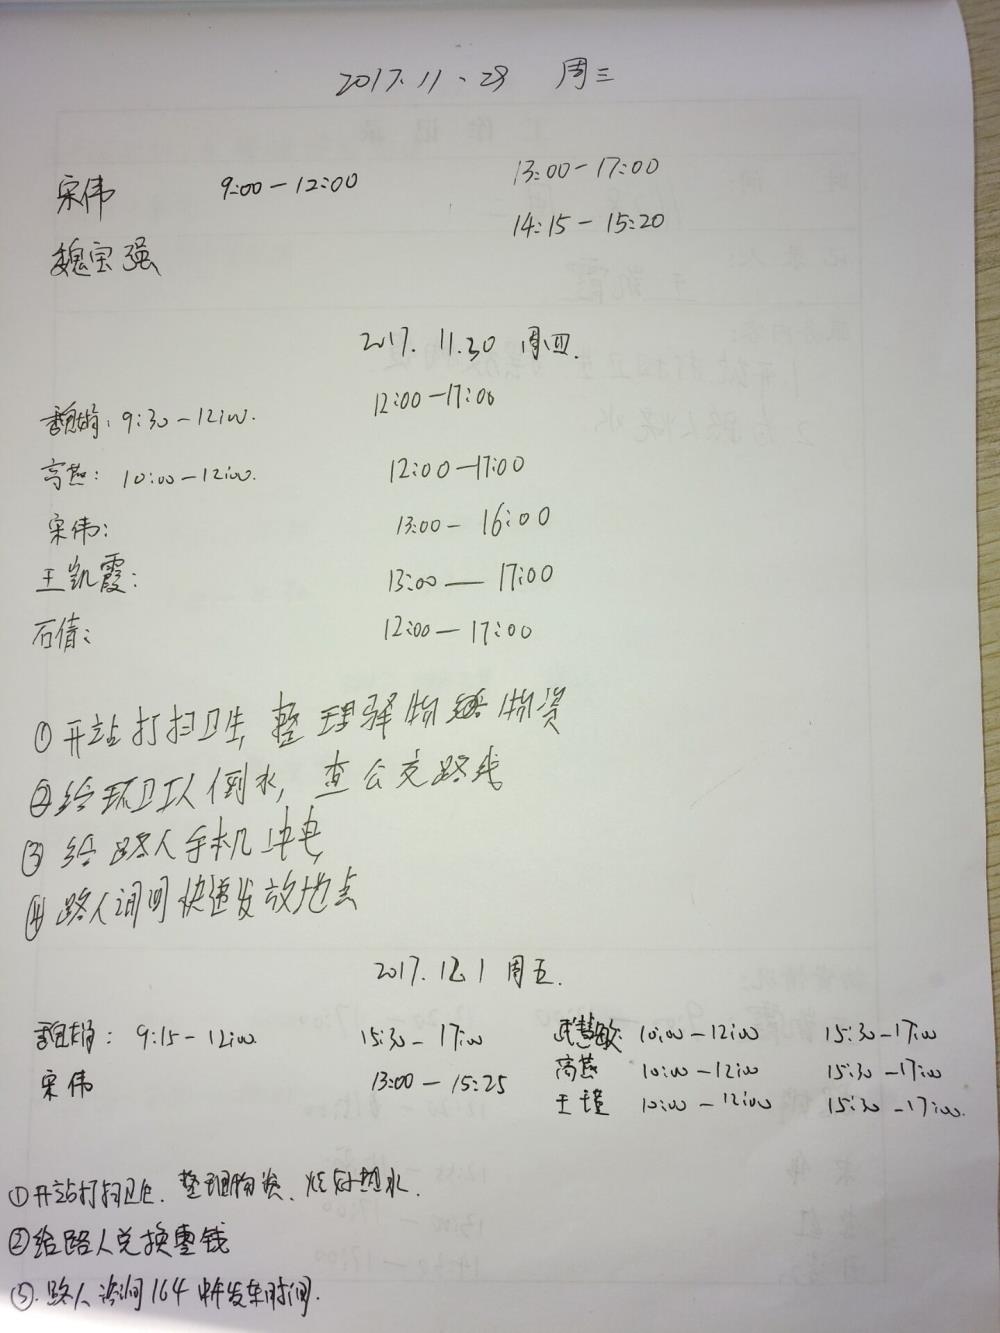 2017.11.29 周三
宋伟 9:00-12:00 13:00-17:00
魏宝强 14:15-15:20
2017.11.30 周四
魏娟: 9:30-12:00. 12:00-17:00
高燕: 10:00-12:00. 12:00-17:00
宋伟: 13:00-16:00
王凯霞: 13:00—17:00
石倩: 12:00—17:00
①开站打扫卫生,整理驿物 物资
②给环卫工人倒水,查公交路线
③给路人手机冲电,
④路人询问快递发放地点
2017.12.1 周五.
魏娟: 9:15-12:00 15:30-17:00 武慧敏: 10:00-12:00 15:30-17:00
宋伟 13:00-15:25 高燕 10:00-12:00 15:30-17:00
王瑾 10:00-12:00 15:30-17:00.
①开站打扫卫生、整理物资、烧好热水.
②给路人兑换零钱
③.路人咨询164 发车时间.